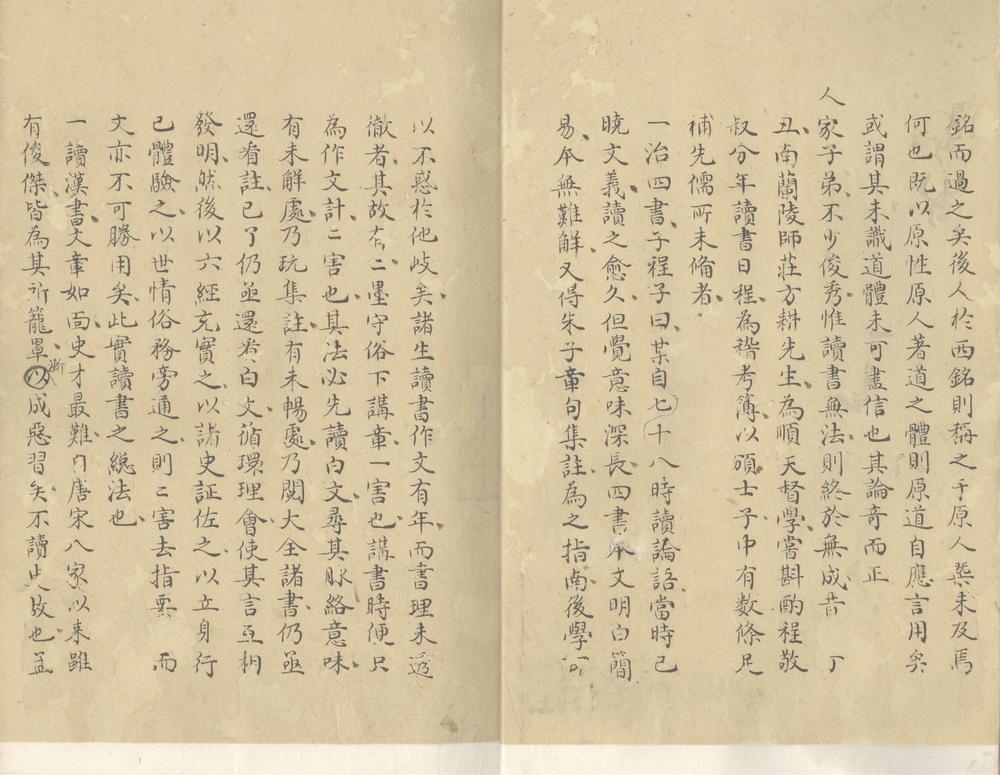 銘而過之矣後人於西銘則稱之于原人槩未及焉
何也既以原性原人著道之體則原道自應言用矣
或謂其未識道體未可盡信也其論奇而正
人家子弟不少俊秀惟讀書無法則終於無成昔 丁
丑南蘭陵師莊方耕先生為順天督學嘗斟酌程敬
叔分年讀書日程為稽考簿以頒士子中有數條足
補先儒所未備者
一治四書子程子曰某自七十八時讀論語當時已
曉文義讀之愈久但覺意味深長四書本文明白簡
易本無難解又得朱子章句集註為之指南後學可
以不惑於他歧矣諸生讀書作文有年而書理未透
徹者其故有二墨守俗下講章一害也講書時便只
為作文計二害也其法必先讀白文尋其脉絡意味
有未解處乃玩集註有未暢處乃閱大全諸書仍亟
還看註已了仍亟還看白文循環理會使其言互相
發明然後以六經充實之以諸史証佐之以立身行
已體驗之以世情俗務旁通之則二害去指要 而
文亦不可勝用矣此實讀書之總法也
一讀漢書文章如面史才最難自唐宋八家以来雖
有俊傑皆為其所籠罩漸以成惡習矣不讀史故也並